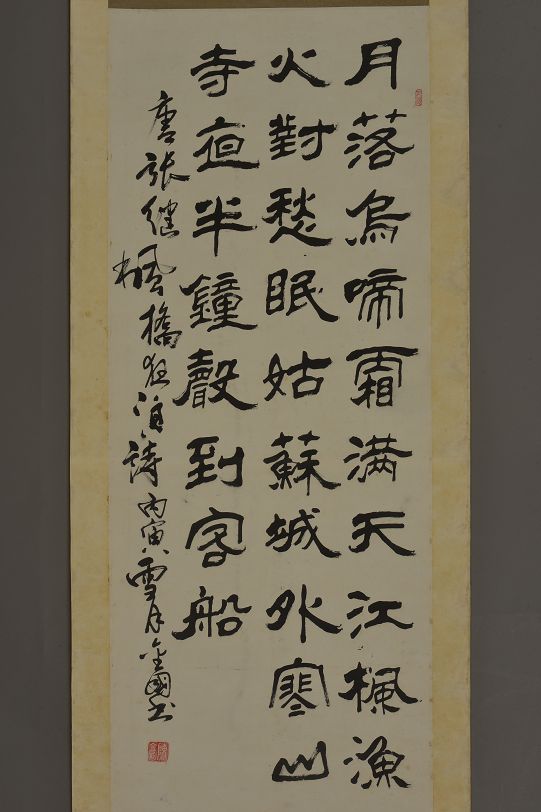 月落烏啼霜満天江楓漁
火對愁眠姑蘇城外寒山
寺夜半鐘聲到客船
唐張継楓橋夜泊詩丙寅雪月金國書